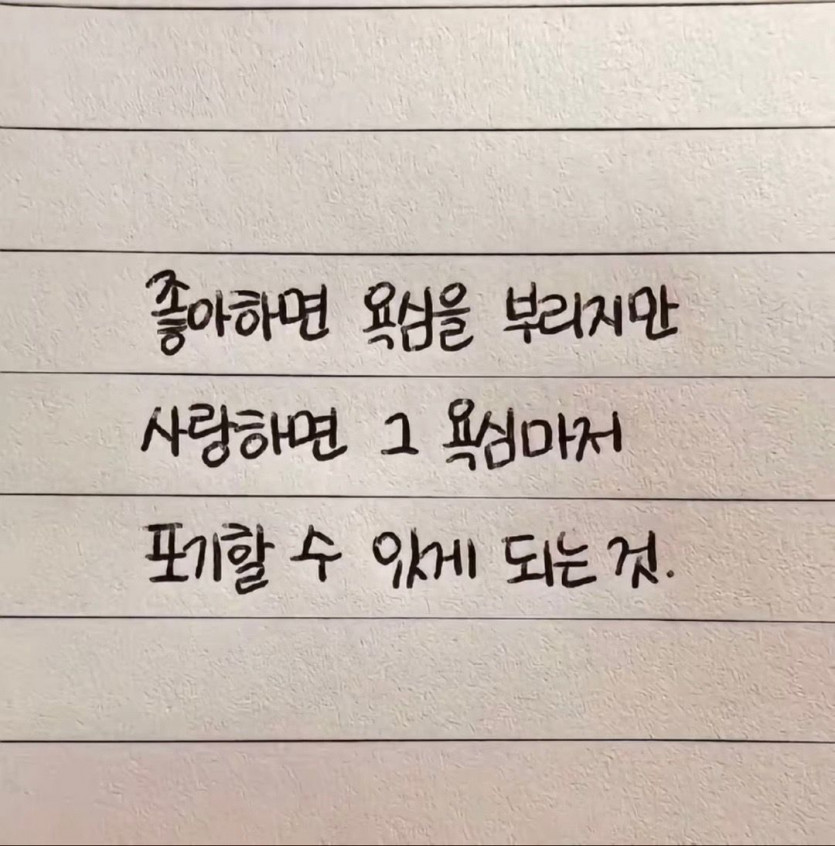 좋아하면 욕심을 부리지만
사랑하면 그 욕심마저
포기할 수 있게 되는 것.